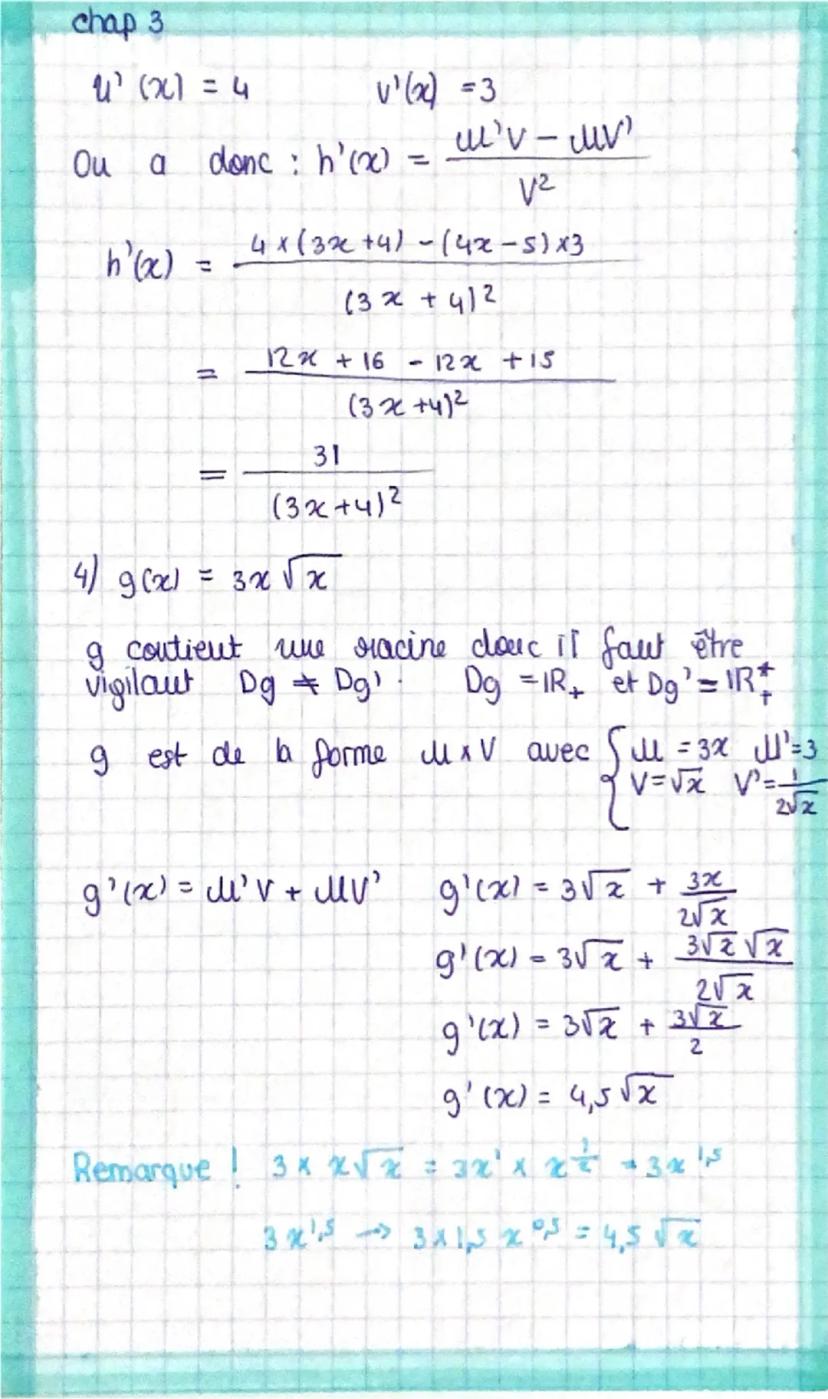 chap 3
u'(x) = 4 v'(x) = 3
On a donc : h'(x) = (u'v - uv') / v²
h'(x) = (4 × (3x + 4) - (4x - 5) × 3) / (3x + 4)²
= (12x + 16 - 12x + 15) / (3x + 4)²
= 31 / (3x + 4)²
4) g(x) = 3x √x
g contient une racine donc il faut être
vigilant Dg ≠ Dg'. Dg = ℝ₊ et Dg' = ℝ₊*
g est de la forme u × v avec { u = 3x u' = 3
v = √x v' = 1 / (2√x)
g'(x) = u'v + uv' g'(x) = 3√x + 3x / (2√x)
g'(x) = 3√x + (3√x √x) / (2√x)
g'(x) = 3√x + (3√x) / 2
g'(x) = 4,5 √x
Remarque ! 3 × x√x = 3x¹ × x^(1/2) = 3x^1,5
3x^1,5 → 3 × 1,5 x^0,5 = 4,5 √x